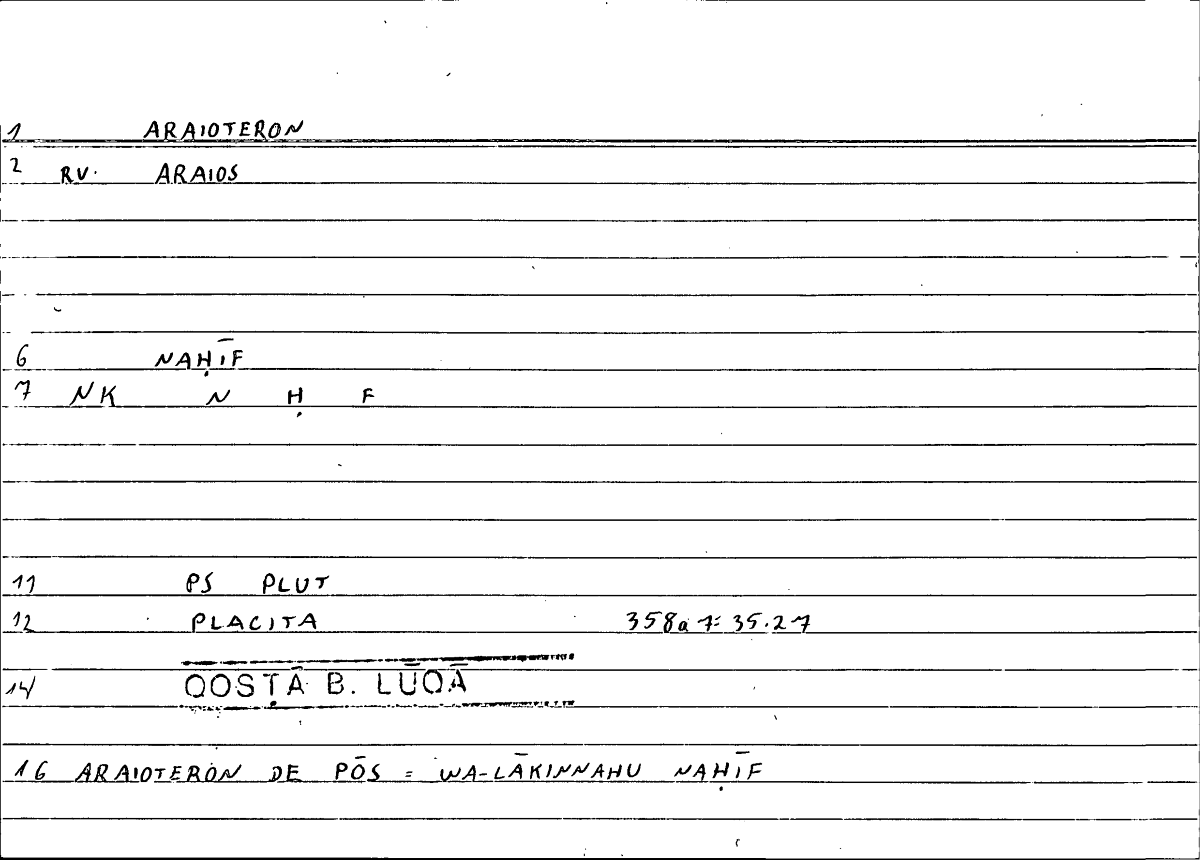 1 ARAIOTERON
2 RV. ARAIOS
6 NAḤĪF
7 NK N Ḥ F
11 PS PLUT
12 PLACITA 358a7=35.27
14 QOSṬĀ B. LŪQĀ
16 ARAIOTERON DE PŌS = WA-LĀKINNAHU NAḤĪF